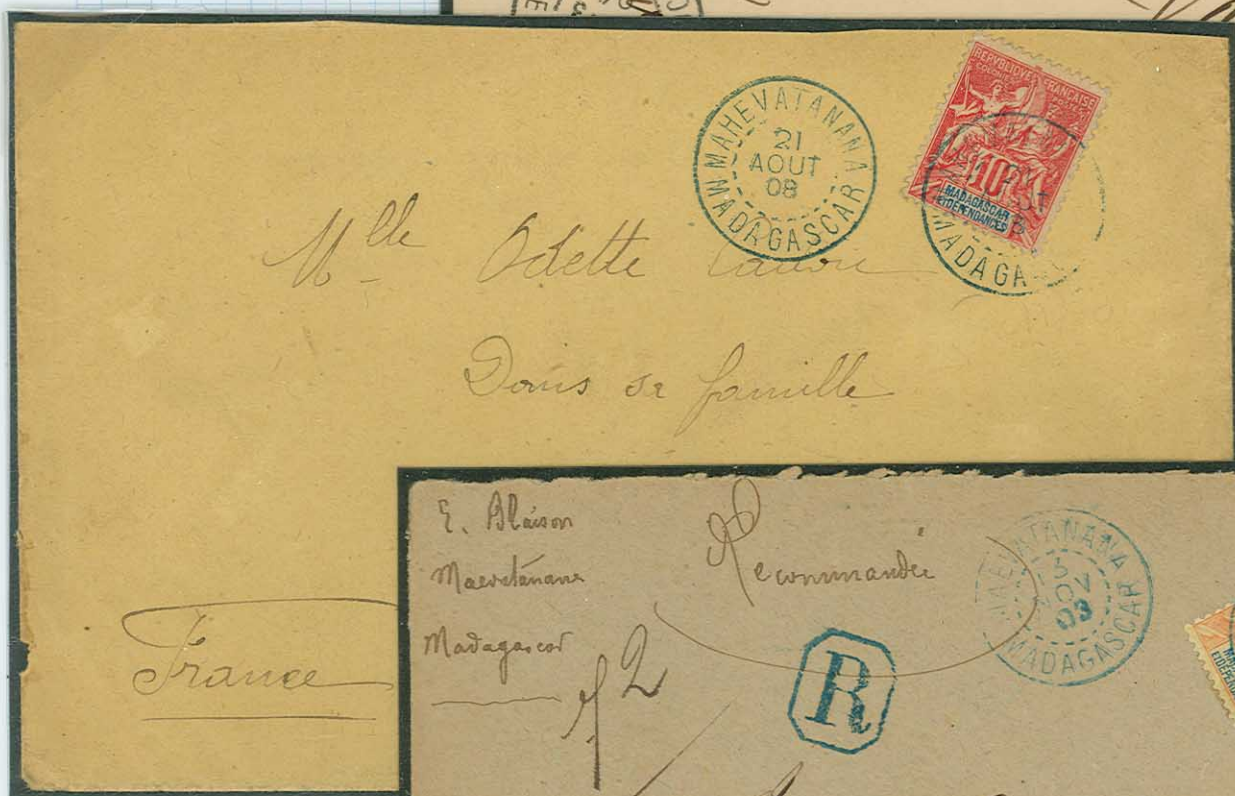 MAHEVATANANA
21
AOUT
08
MADAGASCAR
REPUBLIQUE FRANÇAISE
COLONIES POSTES
10
MADAGASCAR
ET DEPENDANCES
MADAGA
Mlle Odette
Dans sa famille
France
E. Blaison
Maevatanana
Madagascar
Recommandée
MAEVATANANA
03
MADAGASCAR
R
2